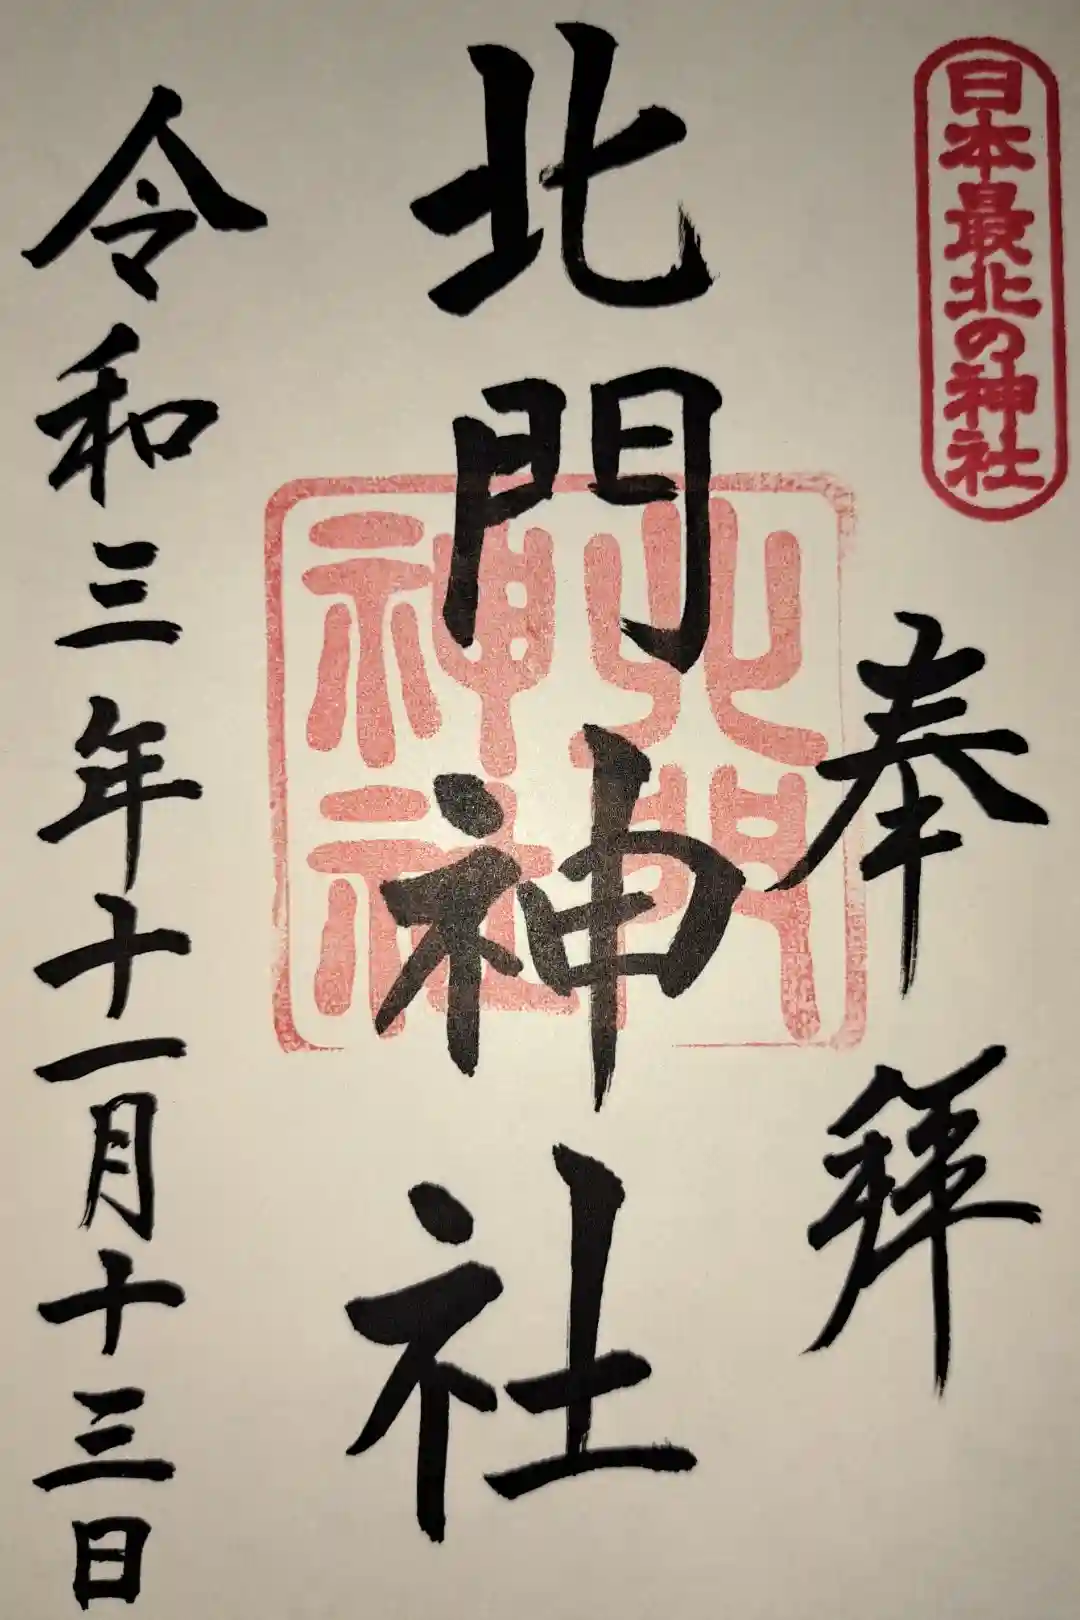 日本最北の神社
奉拝
北門神社
北門
神社
令和三年十一月十三日